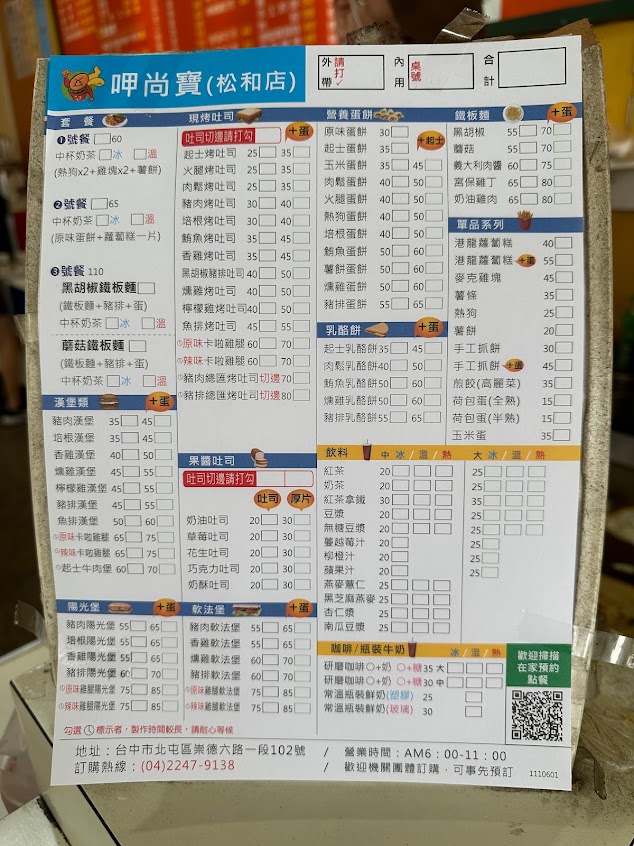 呷尚寶(松和店)
外帶 請打✓
內用 桌號
合計
套餐
❶號餐 60
中杯奶茶 冰 溫
(熱狗x2+雞塊x2+薯餅)
❷號餐 65
中杯奶茶 冰 溫
(原味蛋餅+蘿蔔糕一片)
❸號餐 110
黑胡椒鐵板麵
(鐵板麵+豬排+蛋)
中杯奶茶 冰 溫
蘑菇鐵板麵
(鐵板麵+豬排+蛋)
中杯奶茶 冰 溫
漢堡類 +蛋
豬肉漢堡 35 45
培根漢堡 35 45
香雞漢堡 40 50
燻雞漢堡 45 55
檸檬雞漢堡 45 55
豬排漢堡 45 55
魚排漢堡 50 60
原味卡啦雞腿 65 75
辣味卡啦雞腿 65 75
起士牛肉堡 60 70
陽光堡 +蛋
豬肉陽光堡 55 65
培根陽光堡 55 65
香雞陽光堡 55 65
豬排陽光堡 60 70
原味雞腿陽光堡 75 85
辣味雞腿陽光堡 75 85
現烤吐司
吐司切邊請打勾 +蛋
起士烤吐司 25 35
火腿烤吐司 25 35
肉鬆烤吐司 25 35
豬肉烤吐司 30 40
培根烤吐司 30 40
鮪魚烤吐司 35 45
香雞烤吐司 35 45
黑胡椒豬排吐司 40 50
燻雞烤吐司 40 50
檸檬雞烤吐司 40 50
魚排烤吐司 45 55
原味卡啦雞腿 60 70
辣味卡啦雞腿 60 70
豬肉總匯烤吐司切邊 70
豬排總匯烤吐司切邊 80
果醬吐司
吐司切邊請打勾
吐司 厚片
奶油吐司 20 30
草莓吐司 20 30
花生吐司 20 30
巧克力吐司 20 30
奶酥吐司 20 30
軟法堡 +蛋
豬肉軟法堡 55 65
香雞軟法堡 55 65
燻雞軟法堡 60 70
豬排軟法堡 60 70
原味雞腿軟法堡 75 85
辣味雞腿軟法堡 75 85
營養蛋餅
原味蛋餅 30 +起士
起士蛋餅 35
玉米蛋餅 35 45
肉鬆蛋餅 40 50
火腿蛋餅 40 50
熱狗蛋餅 40 50
培根蛋餅 40 50
鮪魚蛋餅 40 50
薯餅蛋餅 40 50
燻雞蛋餅 40 50
豬排蛋餅 50 60
乳酪餅 +蛋
起士乳酪餅 35 45
肉鬆乳酪餅 40 50
鮪魚乳酪餅 50 60
燻雞乳酪餅 50 60
豬排乳酪餅 55 65
鐵板麵 +蛋
黑胡椒 55 70
蘑菇 55 70
義大利肉醬 60 75
宮保雞丁 65 80
奶油雞肉 65 80
單品系列
港龍蘿蔔糕 40
港龍蘿蔔糕+蛋 55
麥克雞塊 45
薯條 35
熱狗 25
薯餅 20
手工抓餅 30
手工抓餅+蛋 45
煎餃(高麗菜) 35
荷包蛋(全熟) 15
荷包蛋(半熟) 15
玉米蛋 35
飲料 中 冰/溫/熱 大 冰/溫/熱
紅茶 20 25
奶茶 20 25
紅茶拿鐵 30 35
豆漿 20 25
無糖豆漿 20 25
蔓越莓汁 20 25
柳橙汁 20 25
蘋果汁 20 25
燕麥薏仁 25
黑芝麻燕麥 25
杏仁漿 25
南瓜豆漿 25
咖啡/瓶裝牛奶 冰/溫/熱
研磨咖啡○+奶 ○+糖 35 大
研磨咖啡○+奶 ○+糖 30 中
常溫瓶裝鮮奶(塑膠) 25
常溫瓶裝鮮奶(玻璃) 30
歡迎掃描
在家預約
點餐
勾選標示者，製作時間較長，請耐心等候
地址：台中市北屯區崇德六路一段102號 / 營業時間：AM6：00-11：00
訂購熱線：(04)2247-9138 / 歡迎機關團體訂購，可事先預訂 1110601